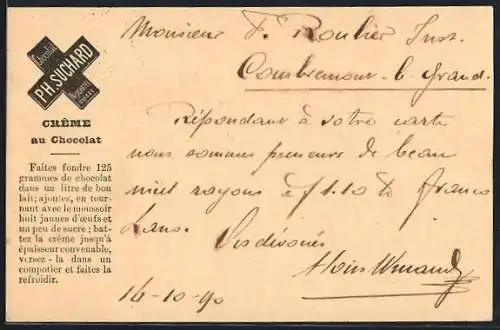 Chocolat
PH. SUCHARD
CRÊME
au Chocolat
Faites fondre 125
grammes de chocolat
dans un litre de bon
lait; ajoutez, en tour-
nant avec le moussoir
huit jaunes d'œufs et
un peu de sucre; bat-
tez la crême jusqu'à
épaisseur convenable,
versez-la dans un
compotier et faites la
refroidir.
Monsieur F. Roulier Inst.
Combremont-l-Grand.
Répondant à votre carte
nous sommes preneurs de beau
miel rayons à f 1.10 franco
Laus.
Vos dévoués
14-10-90